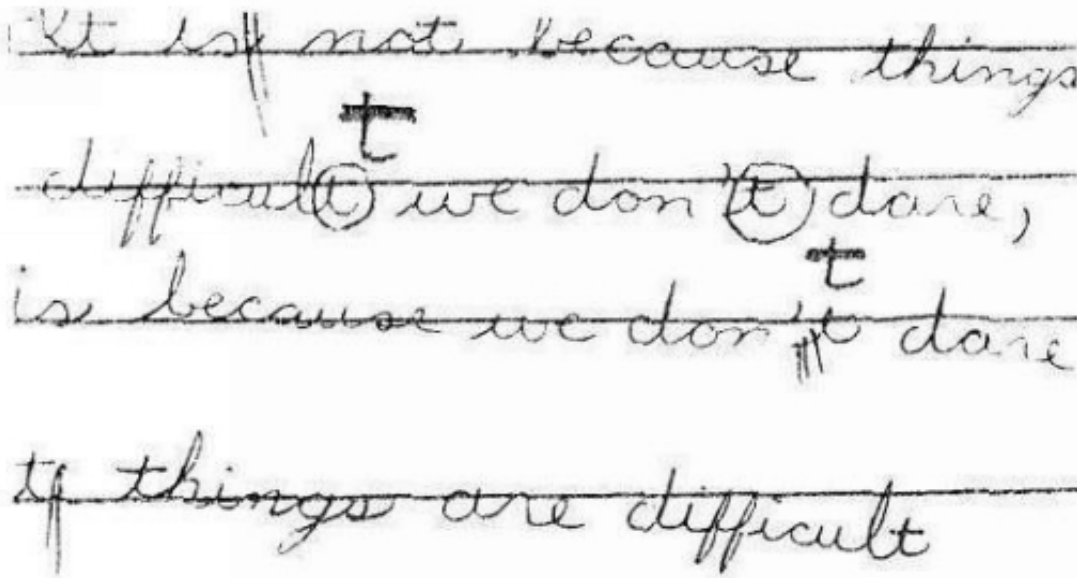 It is not because things
t
difficult we don't dare,
t
is because we don't dare
things are difficult